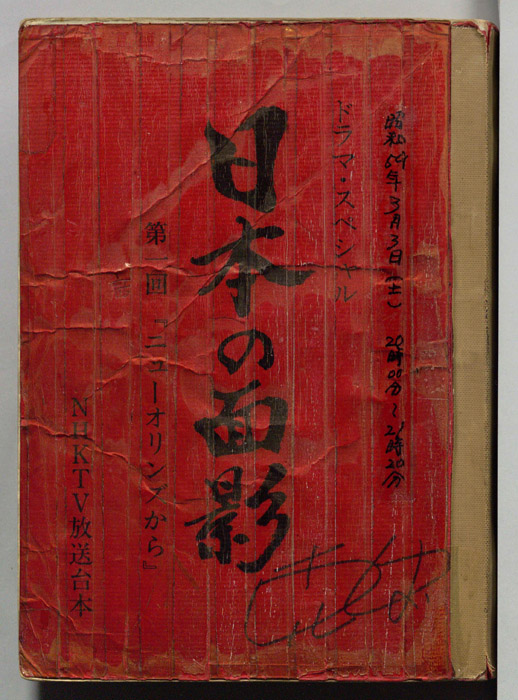 昭和59年3月3日(土) 20時00分〜21時20分
ドラマ・スペシャル
日本の面影
第一回『ニューオリンズから』
NHKTV放送台本